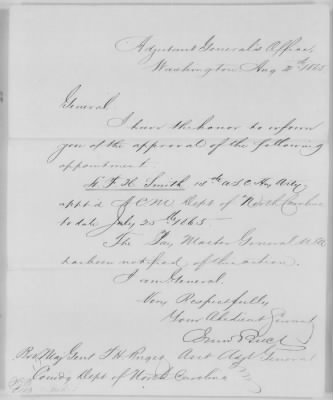 Adjutant General's Office,
Washington Aug 2th 1865
General
I have the honor to inform
you of the approval of the following
appointment
F H Smith 1st U S C Hy Arty
appt'd A C M Dept of North Carolina
to date July 25th 1865.
The Pay Master General U S A
has been notified of this action.
I am General.
Very Respectfully
Your Obedient Servant
Asst Adjt General
Bvt Maj Genl T H Ruger
Comdg Dept of North Carolina